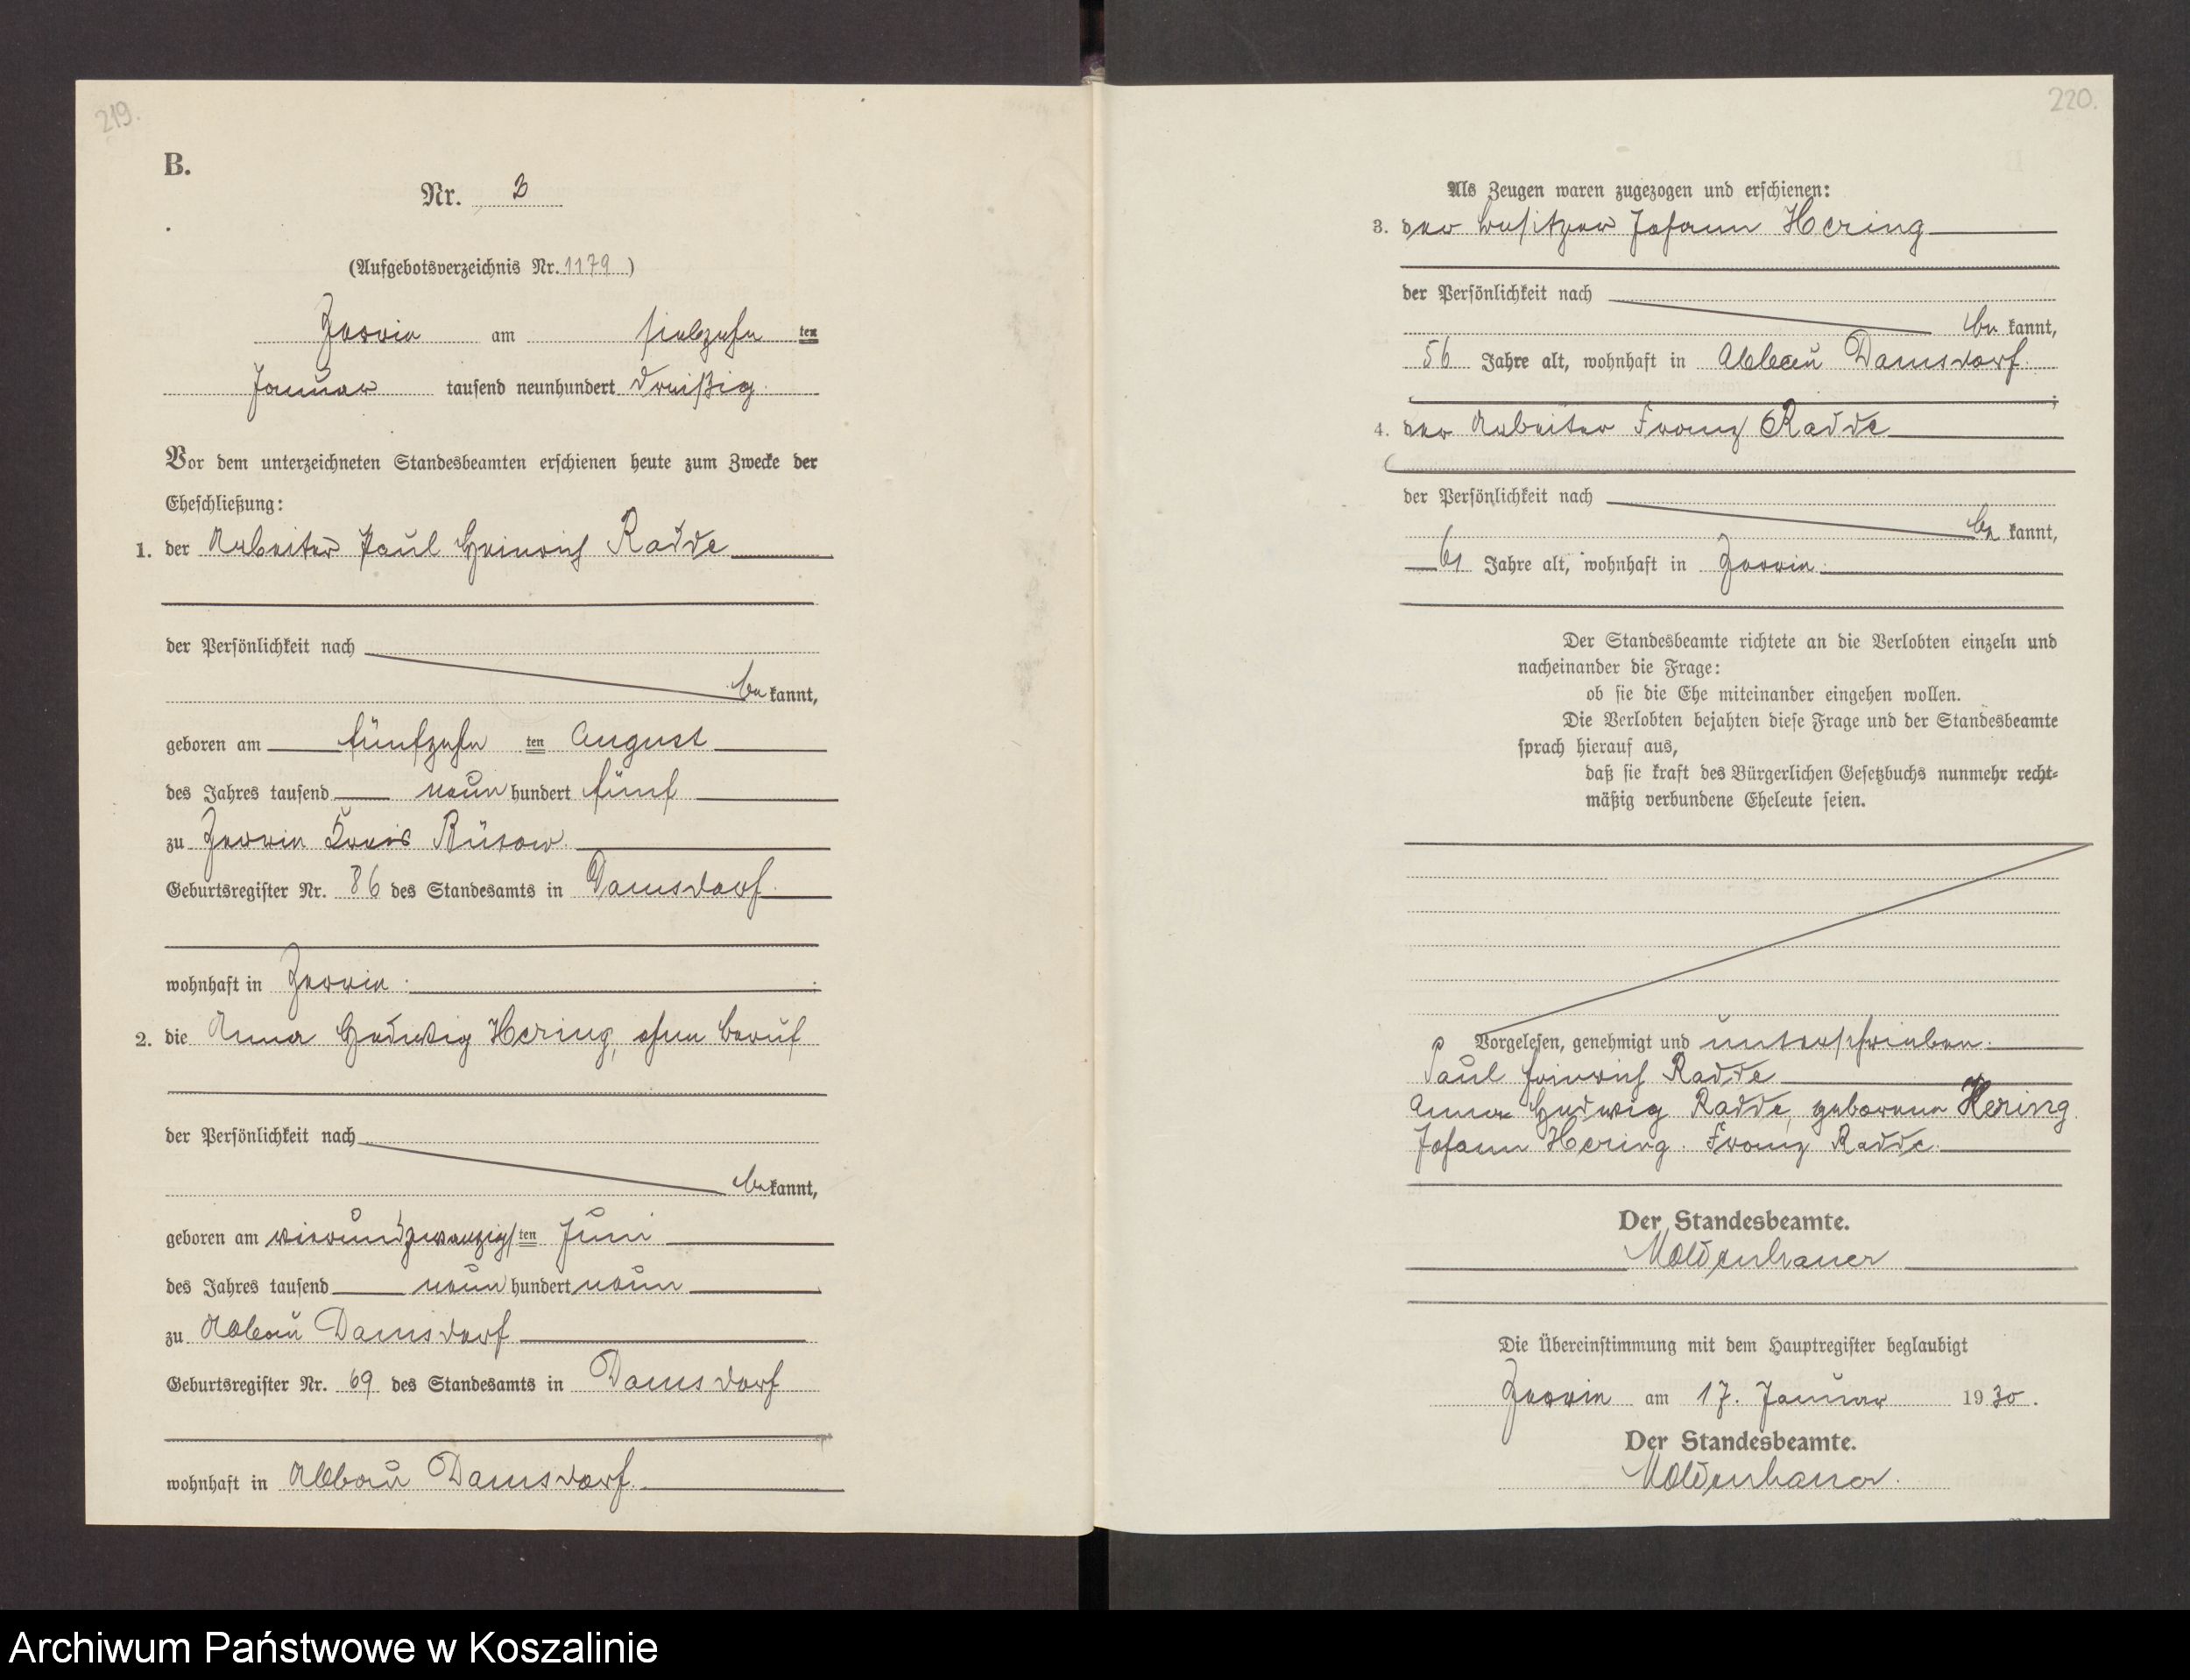 219.
B.
Nr. 2
(Aufgebotsverzeichnis Nr. 1179)
Zerrin am siebzehn ten
Januar tausend neunhundert dreißig.
Vor dem unterzeichneten Standesbeamten erschienen heute zum Zwecke der
Eheschließung:
1. der Arbeiter Paul Heinrich Radde
der Persönlichkeit nach
be kannt,
geboren am fünfzehn ten August
des Jahres tausend neun hundert fünf
zu Zerrin Kreis Bütow.
Geburtsregister Nr. 86 des Standesamts in Damsdorf.
wohnhaft in Zerrin.
2. die Anna Hedwig Hering, ohne Beruf
der Persönlichkeit nach
be kannt,
geboren am vierundzwanzigs ten Juni
des Jahres tausend neun hundert neun
zu Abbau Damsdorf
Geburtsregister Nr. 69 des Standesamts in Damsdorf
wohnhaft in Abbau Damsdorf.
220.
Als Zeugen waren zugezogen und erschienen:
3. der Besitzer Johann Hering
der Persönlichkeit nach
be kannt,
56 Jahre alt, wohnhaft in Abbau Damsdorf.
4. der Arbeiter Franz Radde
der Persönlichkeit nach
be kannt,
61 Jahre alt, wohnhaft in Zerrin.
Der Standesbeamte richtete an die Verlobten einzeln und
nacheinander die Frage:
ob sie die Ehe miteinander eingehen wollen.
Die Verlobten bejahten diese Frage und der Standesbeamte
sprach hierauf aus,
daß sie kraft des Bürgerlichen Gesetzbuchs nunmehr recht-
mäßig verbundene Eheleute seien.
Vorgelesen, genehmigt und unterschrieben.
Paul Heinrich Radde
Anna Hedwig Radde, geborene Hering.
Johann Hering. Franz Radde.
Der Standesbeamte.
Moldenhauer
Die Übereinstimmung mit dem Hauptregister beglaubigt
Zerrin am 17. Januar 1930.
Der Standesbeamte.
Moldenhauer.
Archiwum Państwowe w Koszalinie